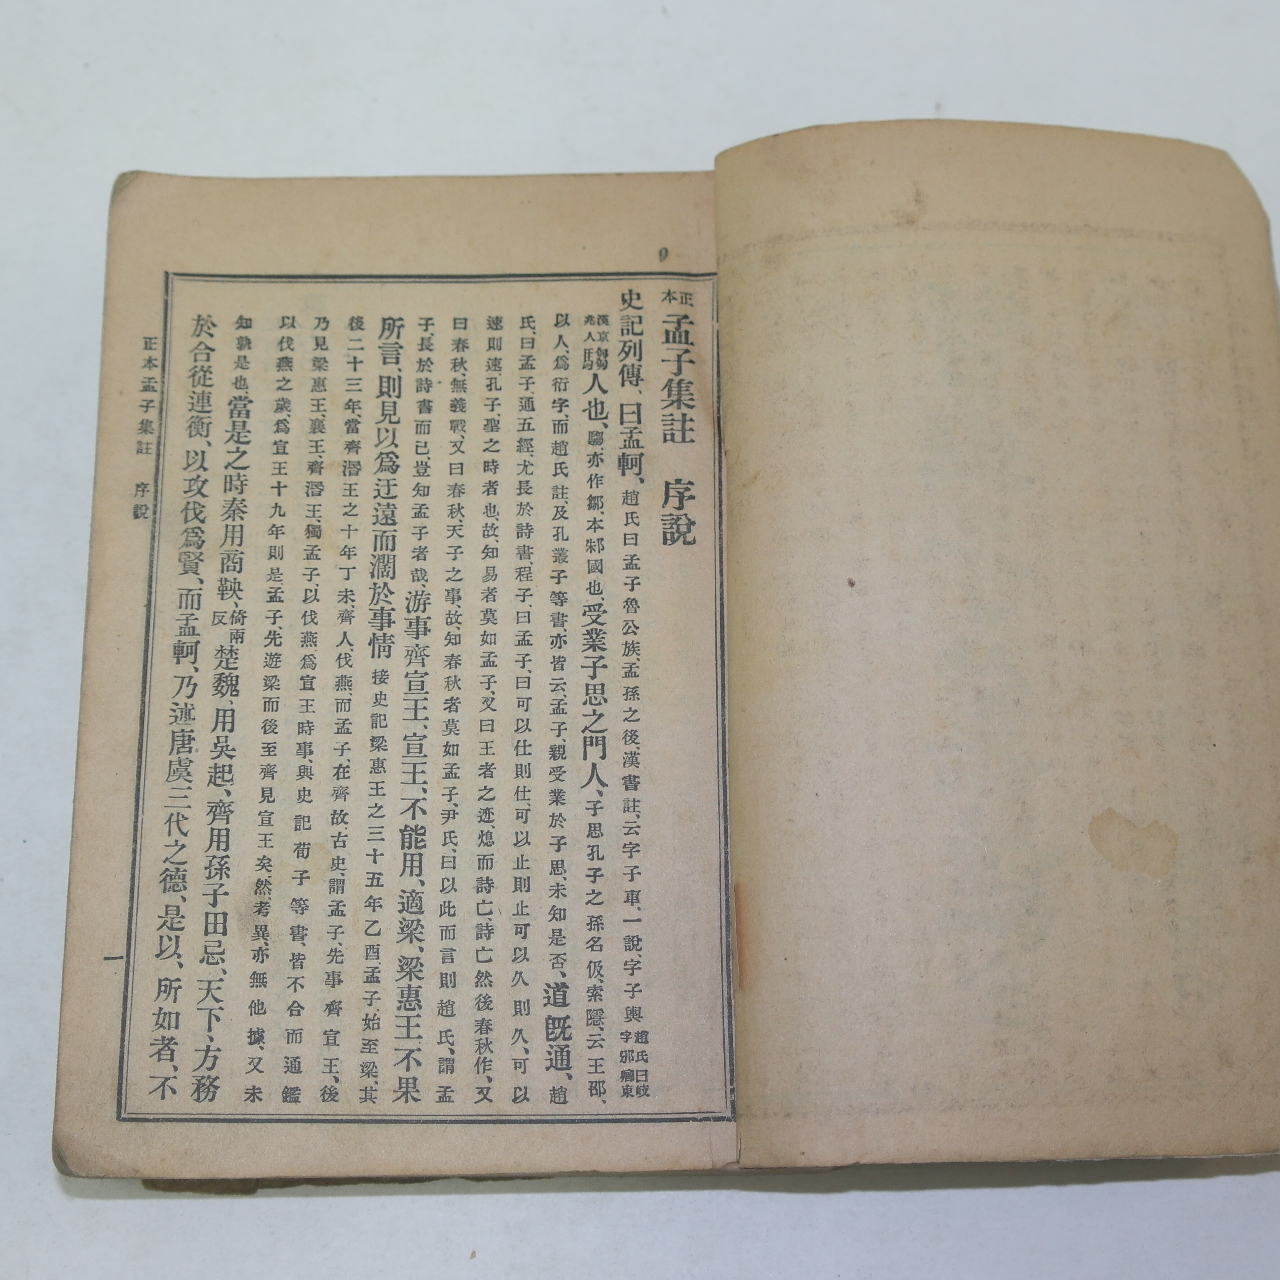 正本 孟子集註 序說
史記列傳、曰孟軻、趙氏曰孟子魯公族、孟孫之後、漢書註、云字子車、一說、字子輿 趙氏曰岐字邠卿東
漢京兆人 人也、騶、亦作鄒、本邾國也、受業子思之門人、子思孔子之孫名伋、索隱、云王邵、
以人、爲衍字、而趙氏註、及孔叢子等書、亦皆云、孟子、親受業於子思、未知是否、道旣通、趙
氏、曰孟子、通五經、尤長於詩書、程子、曰孟子、曰可以仕則仕、可以止則止、可以久則久、可以
速則速、孔子、聖之時者也、故、知易者莫如孟子、又曰王者之迹、熄而詩亡、詩亡然後春秋作、又
曰春秋、無義戰、又曰春秋、天子之事、故知春秋者莫如孟子、尹氏、曰以此而言則趙氏、謂孟
子、長於詩書而已、豈知孟子者哉、游事齊宣王、宣王、不能用、適梁、梁惠王、不果
所言、則見以爲迂遠而濶於事情 接史記梁惠王之三十五年乙酉、孟子、始至梁、其
後二十三年、當齊湣王之十年丁未、齊人、伐燕、而孟子、在齊故、古史、謂孟子、先事齊宣王、後
乃見梁惠王、襄王、齊湣王、獨孟子、以伐燕爲宣王時事、與史記荀子等書、皆不合而通鑑
以伐燕之歲、爲宣王十九年則是、孟子、先遊梁而後至齊見宣王矣、然、考異、亦無他據、又未
知孰是也 當是之時、秦用商鞅、倚兩反 楚魏、用吳起、齊用孫子田忌、天下、方務
於合從連衡、以攻伐爲賢、而孟軻、乃述唐虞三代之德、是以、所如者、不
正本孟子集註 序說
一